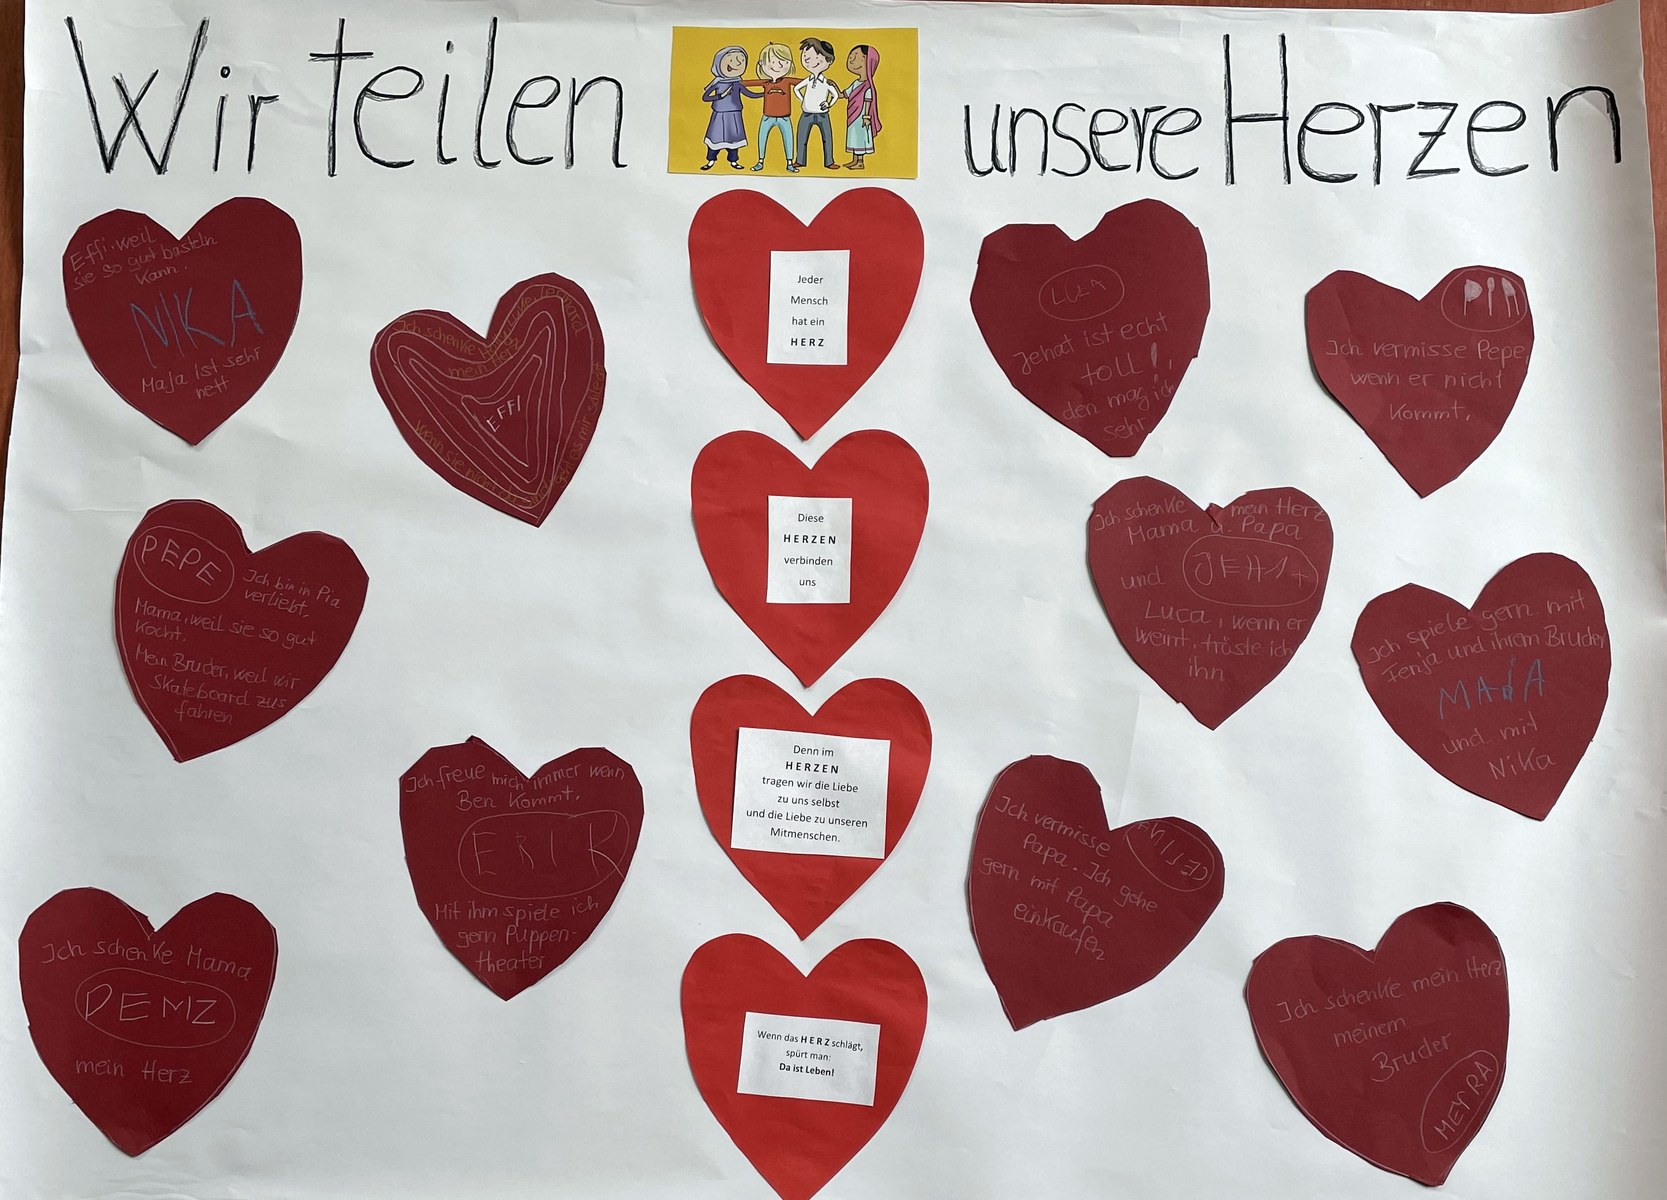 Wir teilen unsere Herzen
Effi, weil
sie so gut basteln
kann.
NIKA
Maja ist sehr
nett
Ich schenke
mein Herz
EFFI
PEPE
Ich bin in Pia
verliebt,
Mama, weil sie so gut
kocht.
Mein Bruder, weil wir
Skateboard zus
fahren
Ich freue mich immer wenn
Ben kommt.
ERIK
Mit ihm spiele ich
gern Puppen-
theater
Ich schenke Mama
DEMZ
mein Herz
Jeder
Mensch
hat ein
HERZ
Diese
HERZEN
verbinden
uns
Denn im
HERZEN
tragen wir die Liebe
zu uns selbst
und die Liebe zu unseren
Mitmenschen.
Wenn das HERZ schlägt,
spürt man:
Da ist Leben!
Jehat ist echt
toll!,
den mag ich
sehr
PIA
Ich vermisse Pepe,
wenn er nicht
kommt.
Ich schenke mein Herz
Mama u. Papa
und
Luca, wenn er
weint, tröste ich
ihn
Ich spiele gern mit
Fenja und ihrem Bruder
MAJA
und mit
Nika
Ich vermisse
Papa. Ich gehe
gern mit Papa
einkaufen
Ich schenke mein Herz
meinem
Bruder
MEYRA